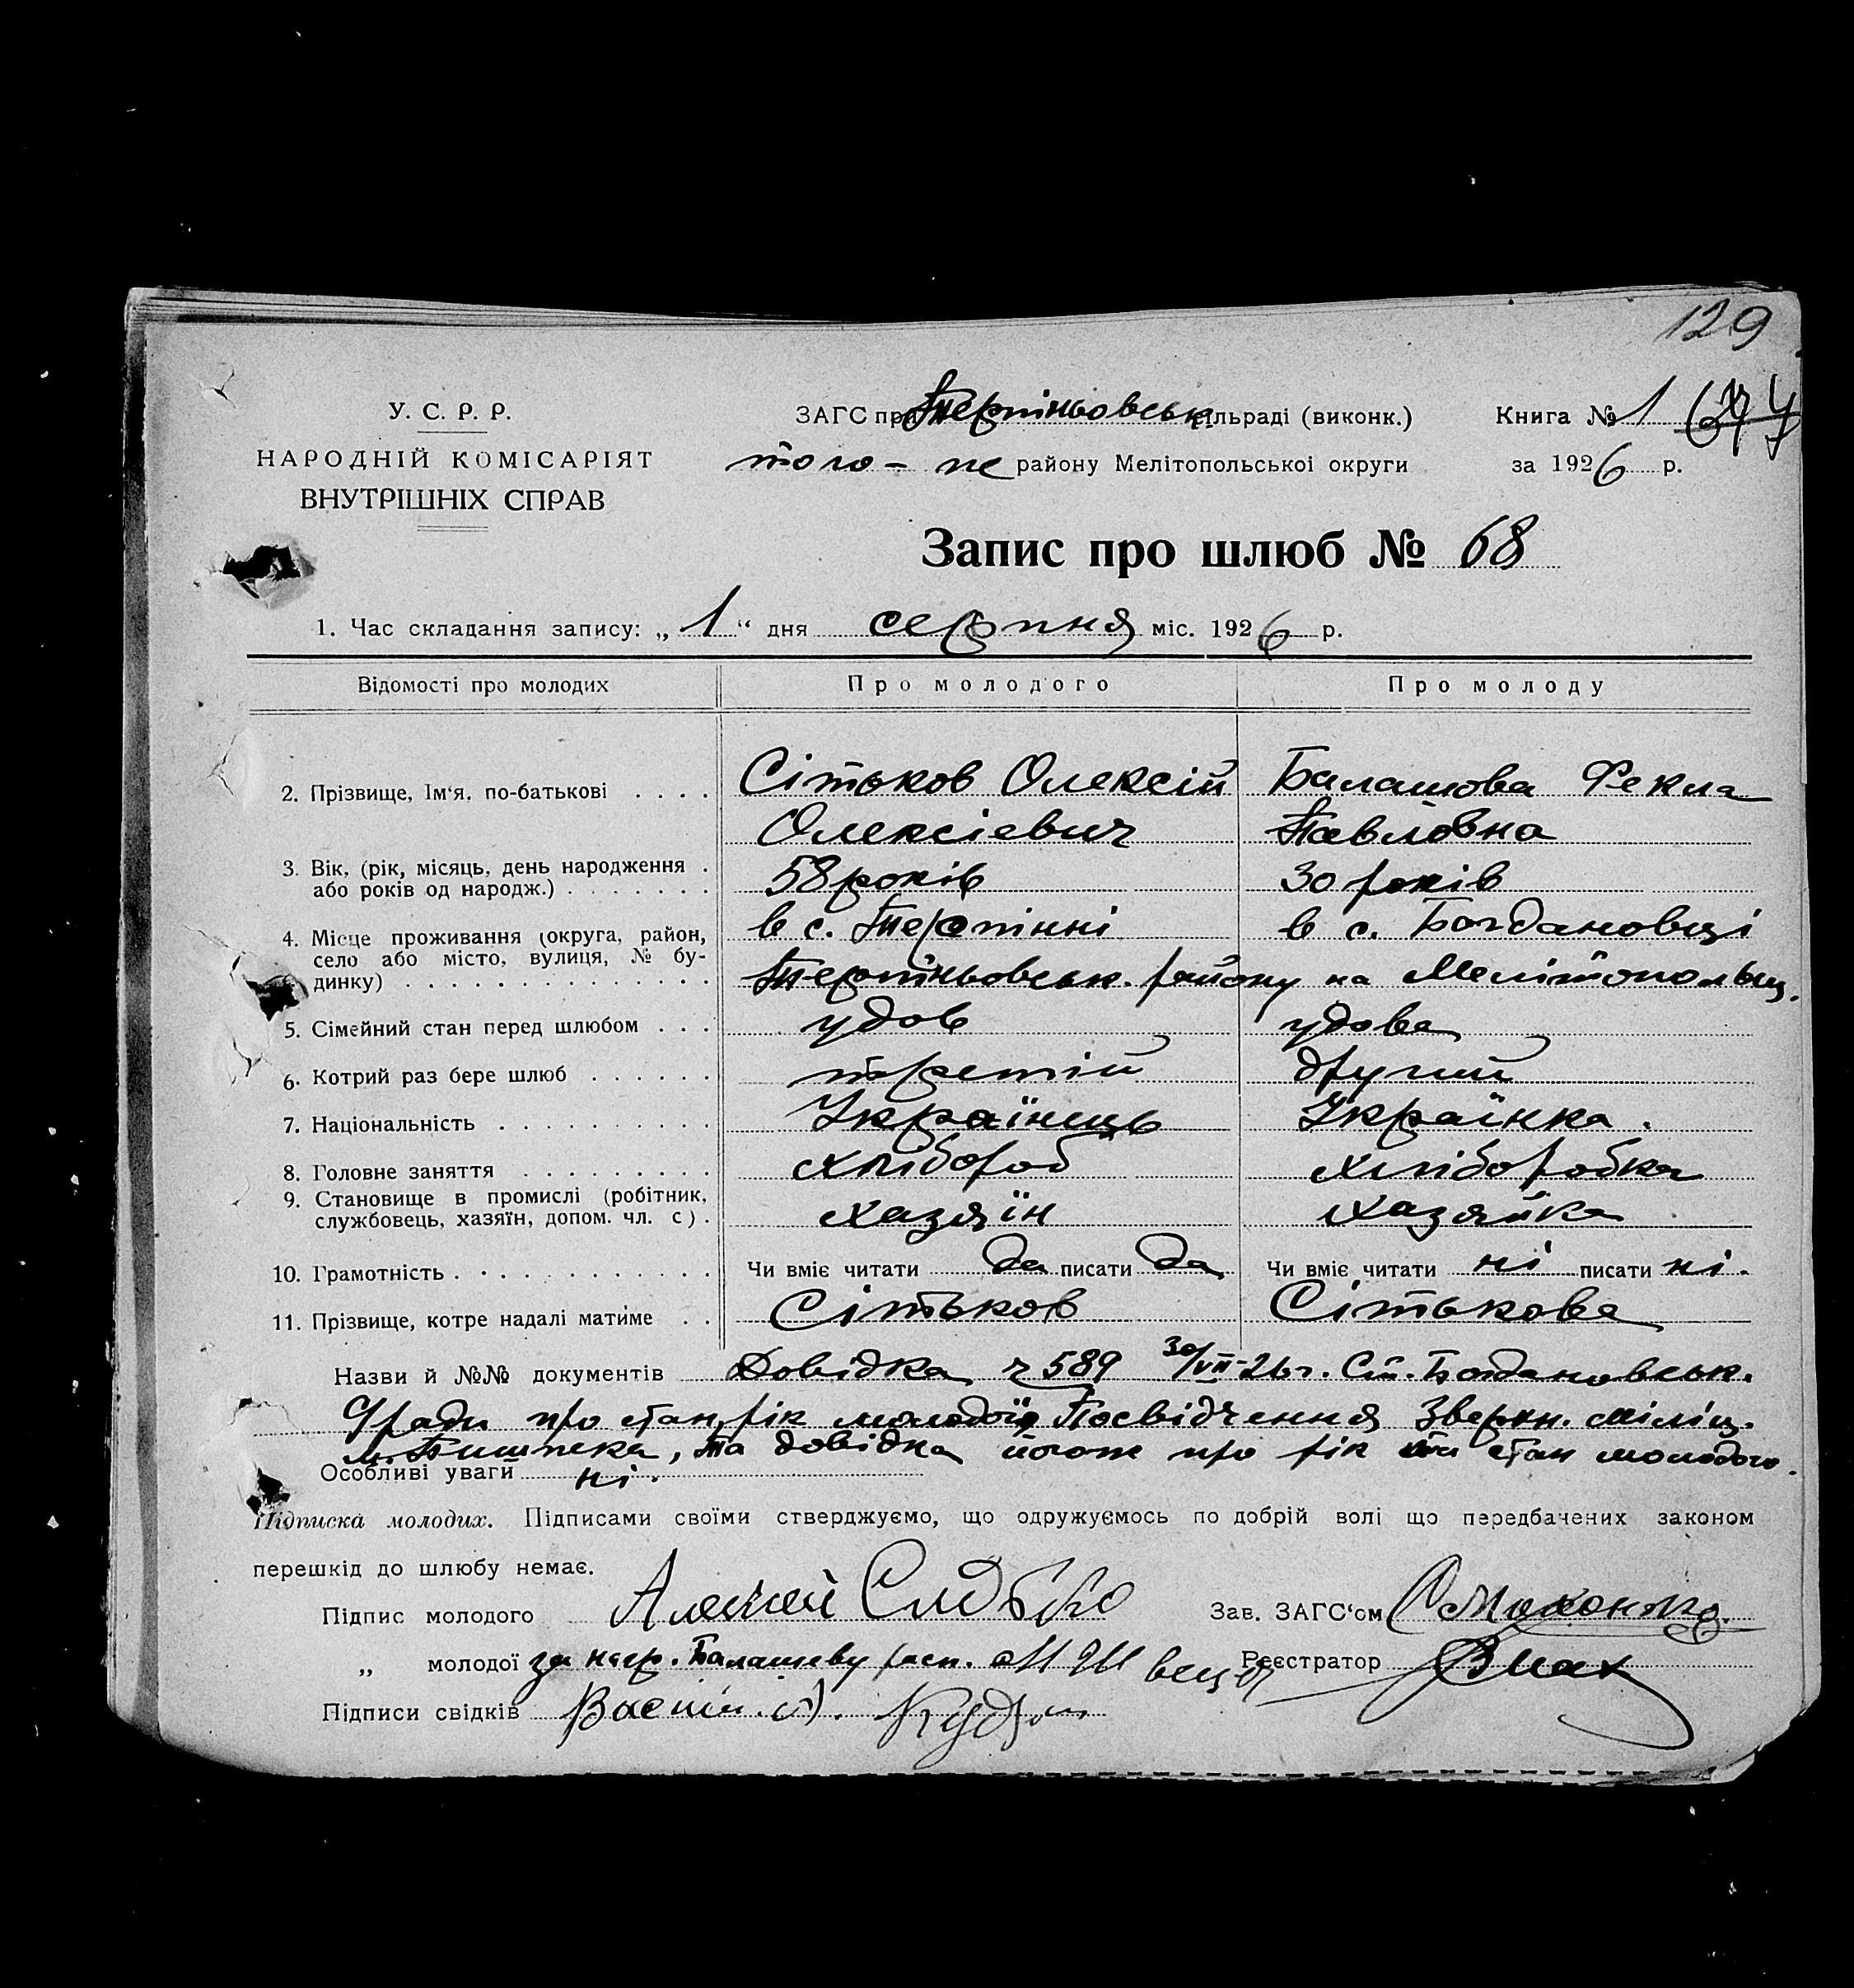 129
У. С. Р. Р.
НАРОДНІЙ КОМІСАРІЯТ
ВНУТРІШНІХ СПРАВ
ЗАГС при Терпіньовськ сільраді (виконк.)
Книга № 1
того-пе району Мелітопольськоі округи
за 1926 р.
Запис про шлюб № 68
1. Час складання запису: „1“ дня серпня міс. 1926 р.
Відомості про молодих Про молодого Про молоду
2. Прізвище, Ім‘я, по-батькові Сітьков Олексій Балашова Фекла
Олексіевич Павловна
3. Вік, (рік, місяць, день народження
або років од народж.) 58 років 30 років
4. Місце проживання (округа, район, в с. Терпінні в с. Богдановці
село або місто, вулиця, № бу-
динку) Терпіньовськ. району на Мелітопольщ.
5. Сімейний стан перед шлюбом удов удова
6. Котрий раз бере шлюб третій другий
7. Національність Українець Українка.
8. Головне заняття хлібороб хлібороbка
9. Становище в промислі (робітник,
службовець, хазяїн, допом. чл. с). хазяїн хазяйка
10. Грамотність Чи вміє читати да писати да Чи вміє читати ні писати ні.
11. Прізвище, котре надалі матиме Сітьков Сітькова
Назви й №№ документів Довідка ч 589 30/VII-26 г. Сіл. Богдановськ.
ради про стан, рік молодої, Посвідчення міліц.
м. Пишпека, та довідка про рік та стан молодого.
Особливі уваги ні.
Підписка молодих. Підписами своїми стверджуємо, що одружуємось по добрій волі що передбачених законом
перешкід до шлюбу немає.
Підпис молодого Алексей Зав. ЗАГС‘ом
„ молодої за негр. Балашеву расп. Реєстратор
Підписи свідків